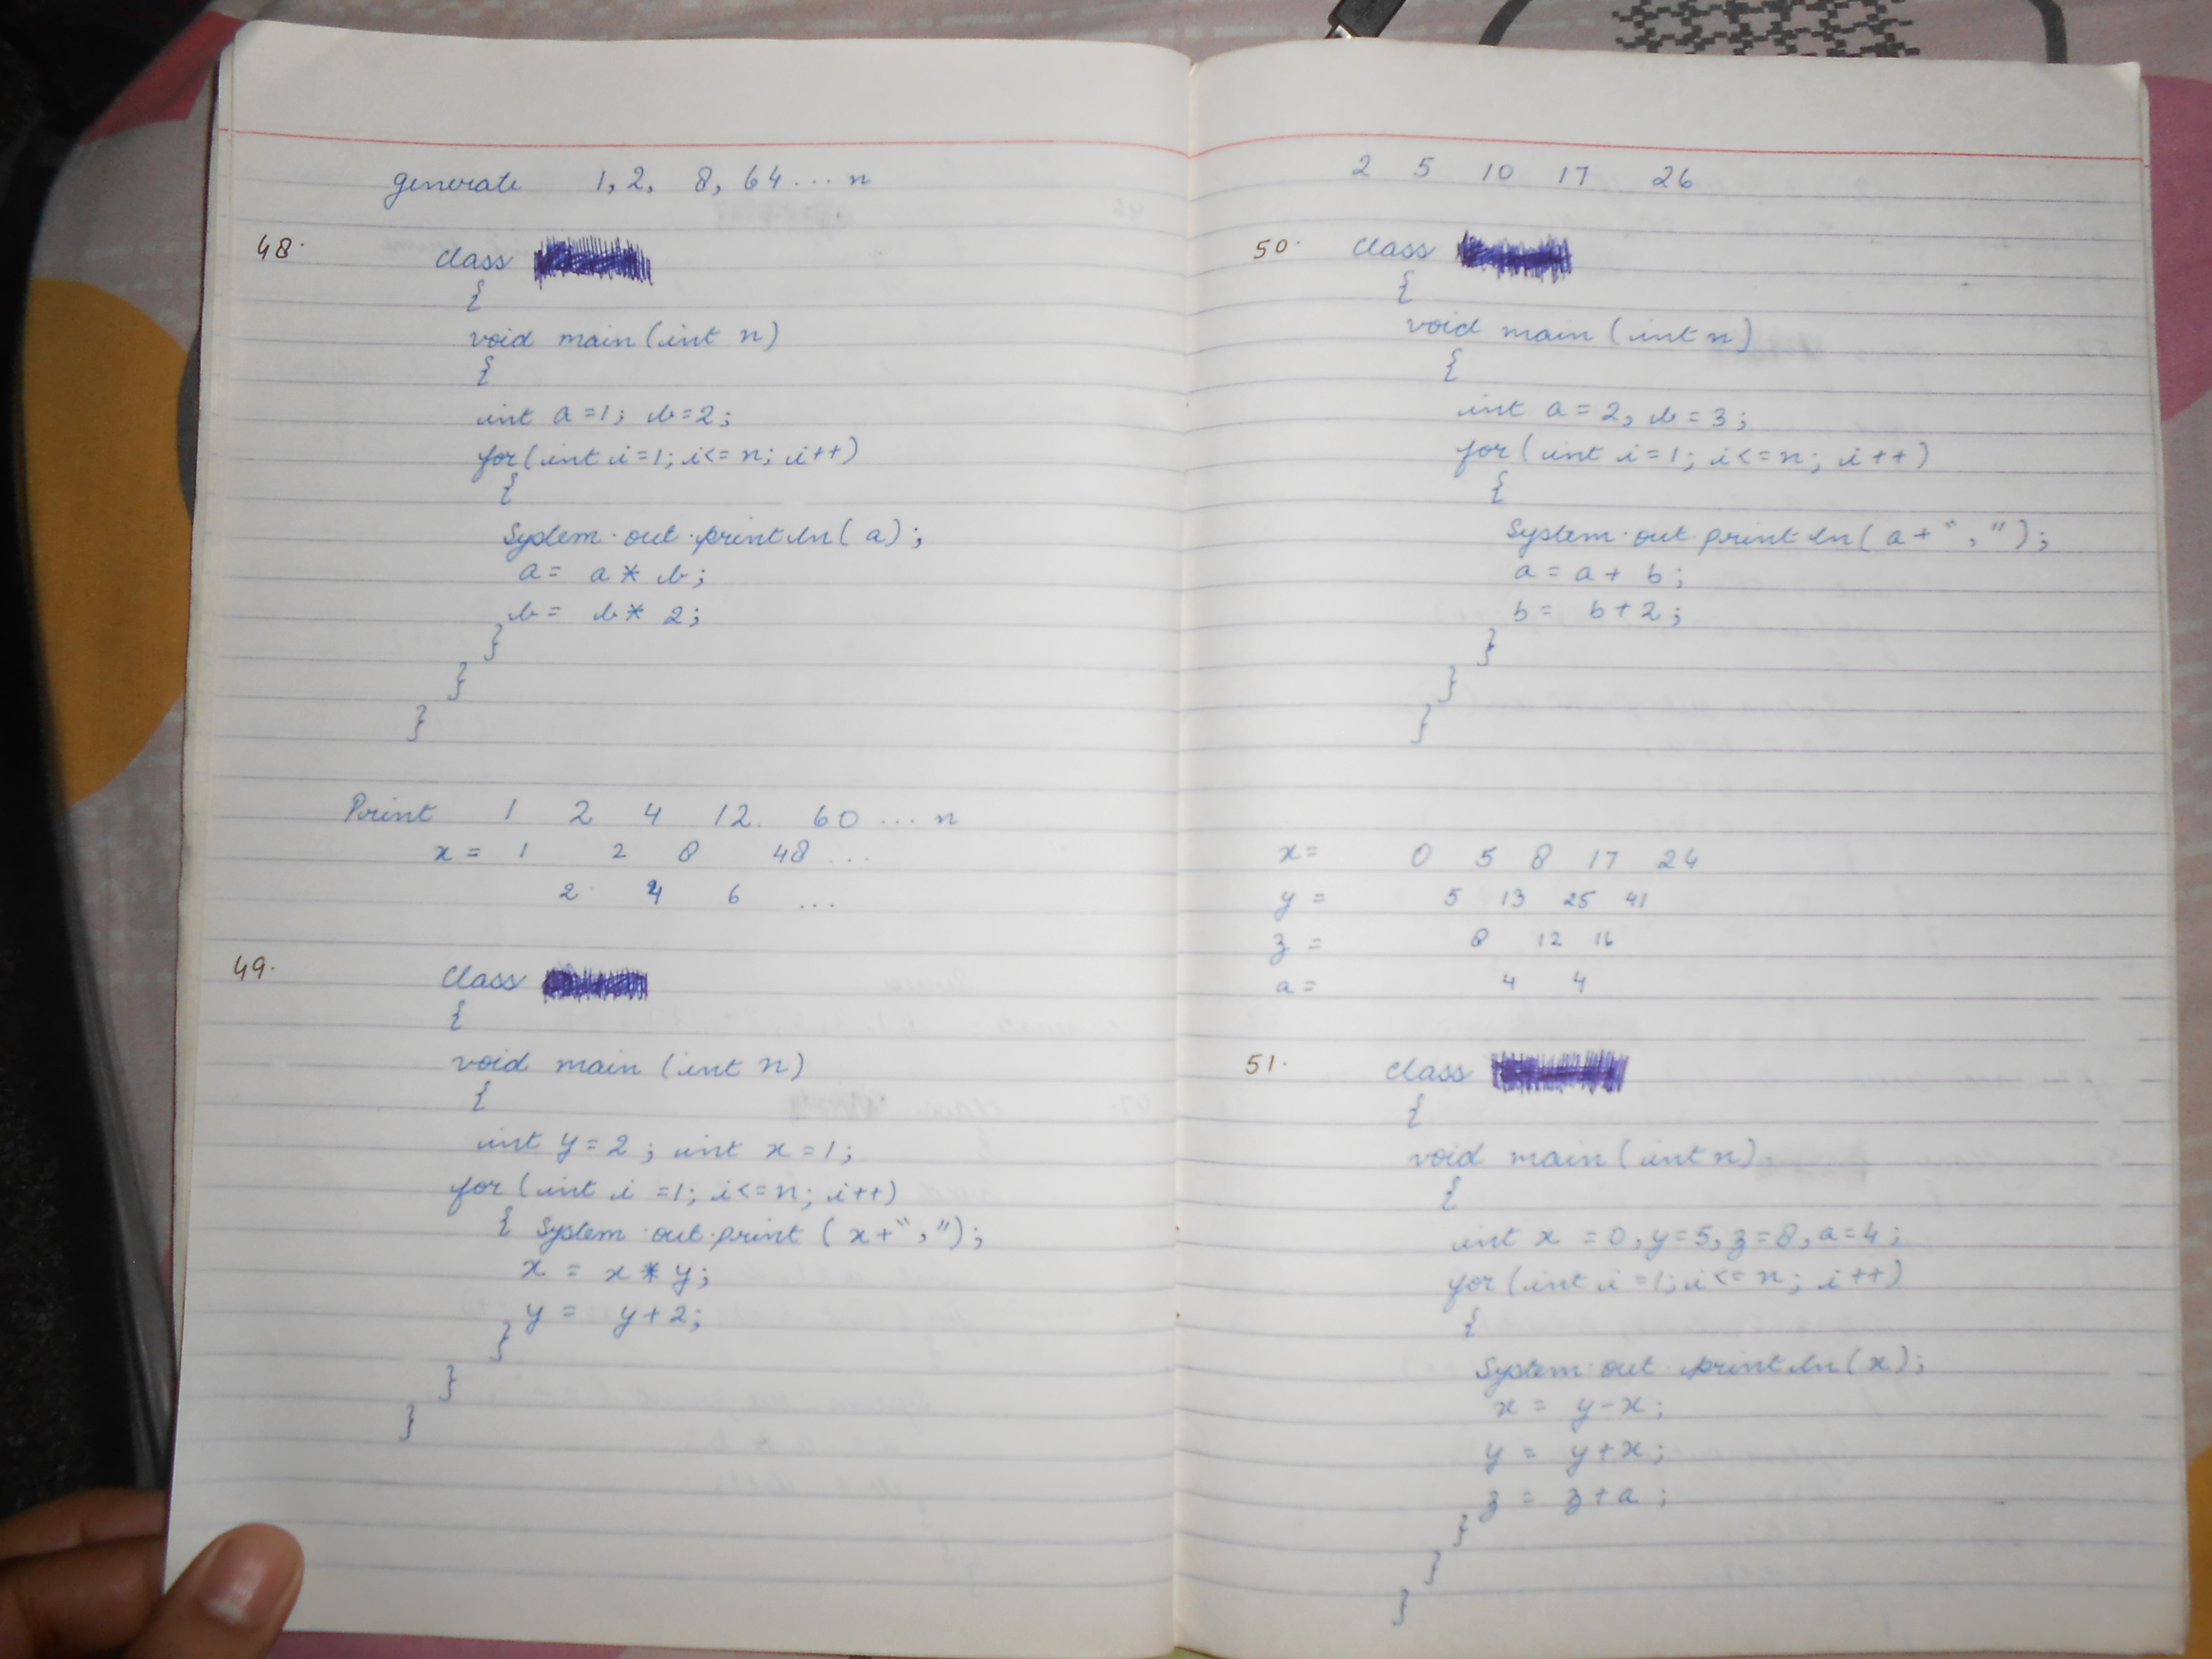 generate 1, 2, 8, 64 ... n
48. class
{
void main (int n)
{
int a =1; b=2;
for (int i=1; i<= n; i++)
{
System.out.println( a);
a = a * b;
b = b * 2;
}
}
}
Print 1 2 4 12. 60 ... n
x = 1 2 8 48 ...
2 4 6 ...
49. class
{
void main (int n)
{
int y=2 ; int x =1;
for (int i =1; i<=n; i++)
{ System.out.print ( x+",");
x = x * y;
y = y+2;
}
}
}
2 5 10 17 26
50. class
{
void main (int n)
{
int a = 2, b = 3;
for (int i=1; i<=n; i++)
{
System.out println( a+ ",");
a = a + b;
b = b+2;
}
}
}
x= 0 5 8 17 24
y = 5 13 25 41
z = 8 12 16
a = 4 4
51. class
{
void main (int n)
{
int x = 0, y=5, z=8, a=4;
for (int i =1; i<= n; i++)
{
System.out.println(x);
x = y-x;
y = y+x;
z = z+a ;
}
}
}